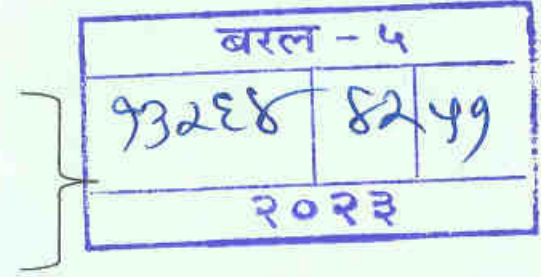 बरल - ५
१३२६४ ४२ ५१
२०२३